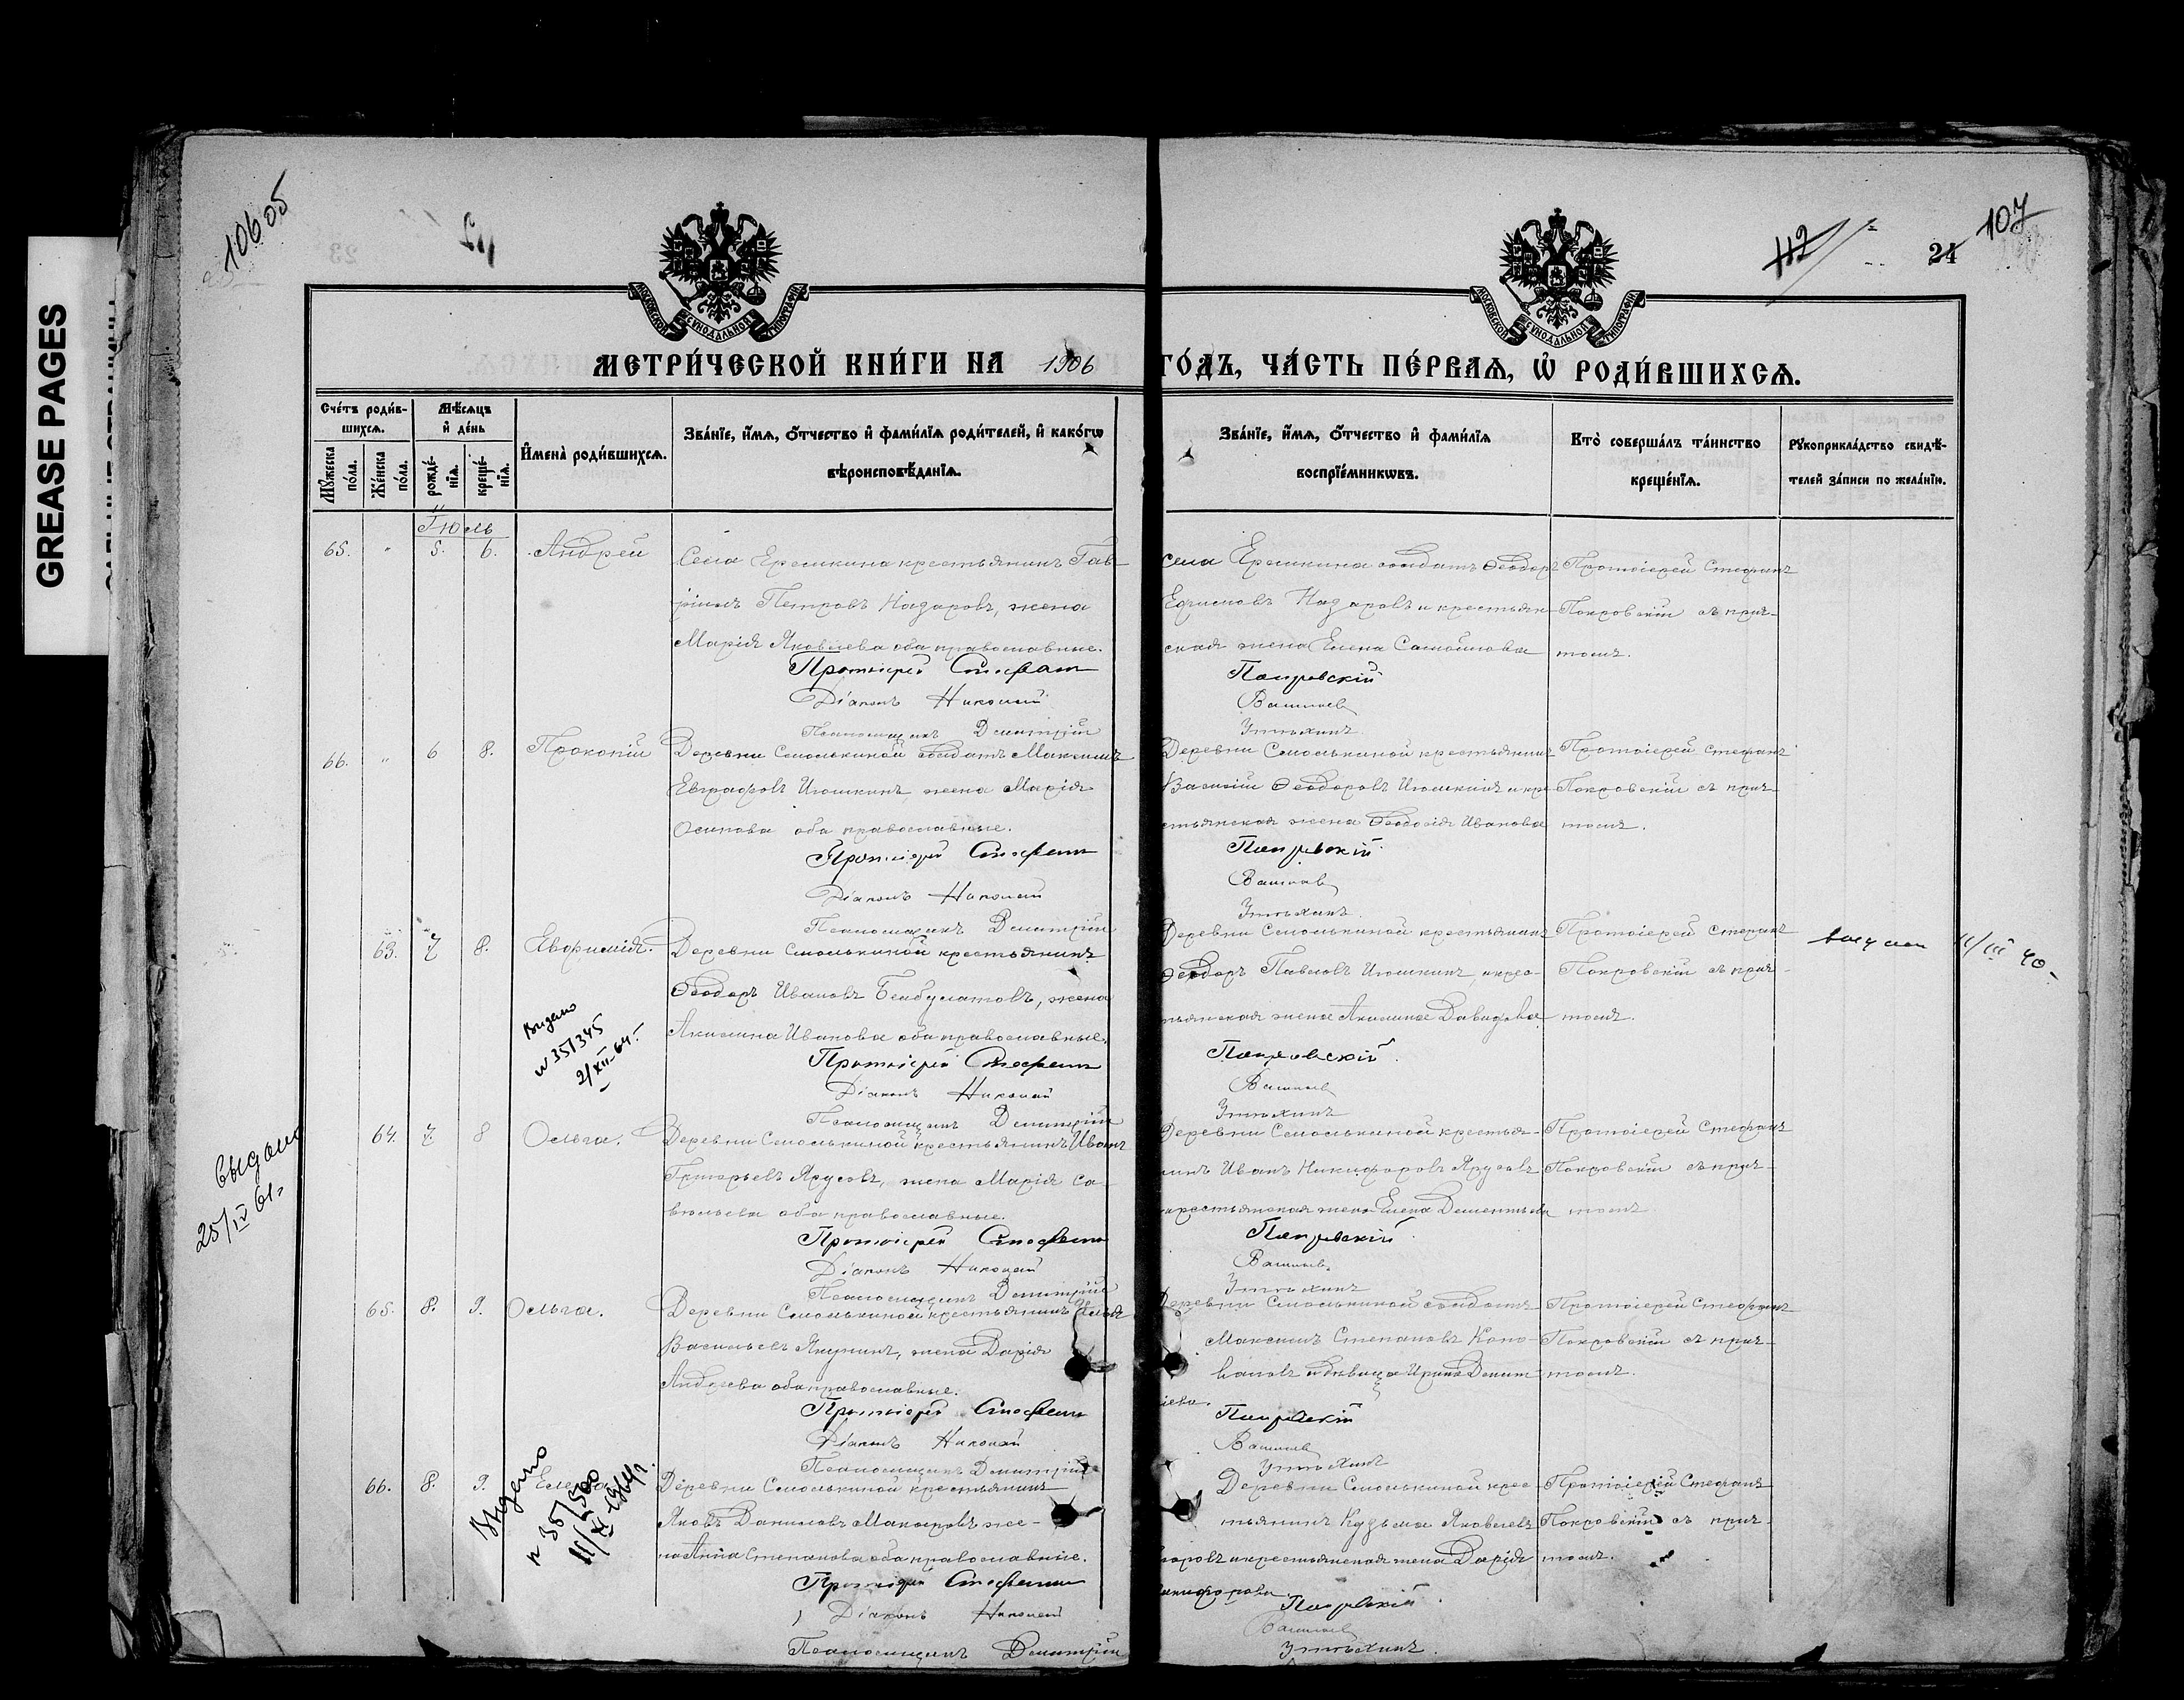 GREASE PAGES
10605
112
24
107
МОСКОВСКОЙ СѴНОДАЛЬНОЙ ТИПОГРАФІИ
МОСКОВСКОЙ СѴНОДАЛЬНОЙ ТИПОГРАФІИ
МЕТРИ́ЧЕСКОЙ КНИ́ГИ НА 1906 ГО́ДЪ, ЧА́СТЬ ПЕ́РВАѦ, Ѡ҆ РОДИ́ВШИХСѦ.
Сче́тъ роди́в-
шихсѧ.
Мѣ́сѧцъ
и҆ де́нь
Мꙋ́жеска по́ла.
Же́нска по́ла.
рожде́-
нїѧ.
креще́-
нїѧ.
И҆мена̀ роди́вшихсѧ.
Зва́нїе, и҆́мѧ, ѻ҆́тчество и҆ фами́лїѧ роди́телей, и҆ како́гѡ
вѣроисповѣ́данїѧ.
Зва́нїе, и҆́мѧ, ѻ҆́тчество и҆ фами́лїѧ
воспрїе́мникѡвъ.
Кто̀ соверша́лъ та́инство
креще́нїѧ.
Рꙋкоприкла́дство свидѣ́-
телей за́писи по жела́нїю.
Іюль
65. " 5. 6. Андрей
Села Еремкина крестьянинъ Гав-
ріилъ Петровъ Назаровъ, жена
Марія Яковлева оба православные.
Протоіерей Стефан
Діаконъ Николай
Псаломщикъ Димитрій
Села Еремкина солдатъ Ѳеодоръ
Ефимовъ Назаровъ и крестьян-
ская жена Елена Самойлова
Покровскій
Утѣхинъ
Протоіерей Стефанъ
Покровскій съ прич-
томъ.
66. " 6 8. Прокопій
Деревни Смолькиной солдатъ Максимъ
Евграфовъ Июшкинъ, жена Марія
Осипова оба православные.
Протоіерей Стефан
Діаконъ Николай
Псаломщикъ Димитрій
Деревни Смолькиной крестьянинъ
Василій Ѳеодоровъ Июшкинъ и кре-
стьянская жена Ѳеодосія Иванова
Покровскій
Утѣхинъ.
Протоіерей Стефанъ
Покровскій съ прич-
томъ.
63. 7 8. Евфимія.
Деревни Смолькиной крестьянинъ
Ѳеодоръ Ивановъ Бекбулатовъ, жена
Акилина Иванова оба православные.
Протоіерей Стефан
Діаконъ Николай
Псаломщикъ Димитрій
Деревни Смолькиной крестьянинъ
Ѳеодоръ Павловъ Июшкинъ, и крес-
тьянская жена Акилина Давидова
Покровскій
Утѣхинъ
Протоіерей Стефанъ
Покровскій съ прич-
томъ.
выдан 11/III 40
Выдано
N 351345
2/XII-64.
64. 7. 8 Ольга.
Деревни Смолькиной крестьянинъ Иванъ
Григорьевъ Ярусовъ, жена Марія Са-
вельева оба православные.
Протоіерей Стефан
Діаконъ Николай
Псаломщикъ Димитрій
Деревни Смолькиной крестья-
нинъ Иванъ Никифоровъ Ярусовъ
крестьянская жена Елена Дементьева
Покровскій
Утѣхинъ
Протоіерей Стефанъ
Покровскій съ прич-
томъ
выдано
25/IV 61.
65. 8. 9. Ольга.
Деревни Смолькиной крестьянинъ Илья
Васильевъ Якунинъ, жена Дарія
Андреева оба православные.
Протоіерей Стефан
Діаконъ Николай
Псаломщикъ Димитрій
Деревни Смолькиной солдатъ
Максимъ Степановъ Коно-
валовъ и дѣвица Ирина Димит-
ріева.
Покровскій
Утѣхинъ
Протоіерей Стефанъ
Покровскій съ прич-
томъ.
66. 8. 9. Елена
Деревни Смолькиной крестьянинъ
Яковъ Даниловъ Макаровъ же-
на Анна Степанова оба православные.
Протоіерей Стефан
Діаконъ Николай
Псаломщикъ Димитрій
Деревни Смолькиной крес-
тьянинъ Кузьма Яковлевъ
каровъ и крестьянская жена Дарія
Никифорова.
Покровскій
Утѣхинъ.
Протоіерей Стефанъ
Покровскій съ прич-
томъ.
Выдано